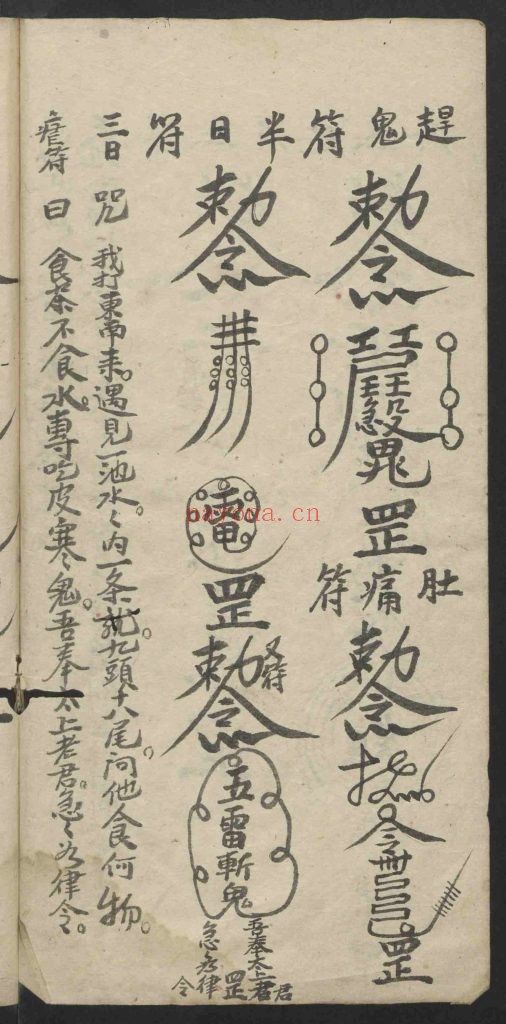 趕鬼符
半日符
三日瘧符
勅令
罡
肚痛符
勅令
令
罡
勅令
罡
又符
勅令
五雷斬鬼
吾奉太上老君
急急如律令
罡
咒曰
我打東南來。遇見一池水。々內一条龍。九頭十八尾。問他食何物。
食茶不食水。專吃皮寒鬼。吾奉太上老君。急々如律令。